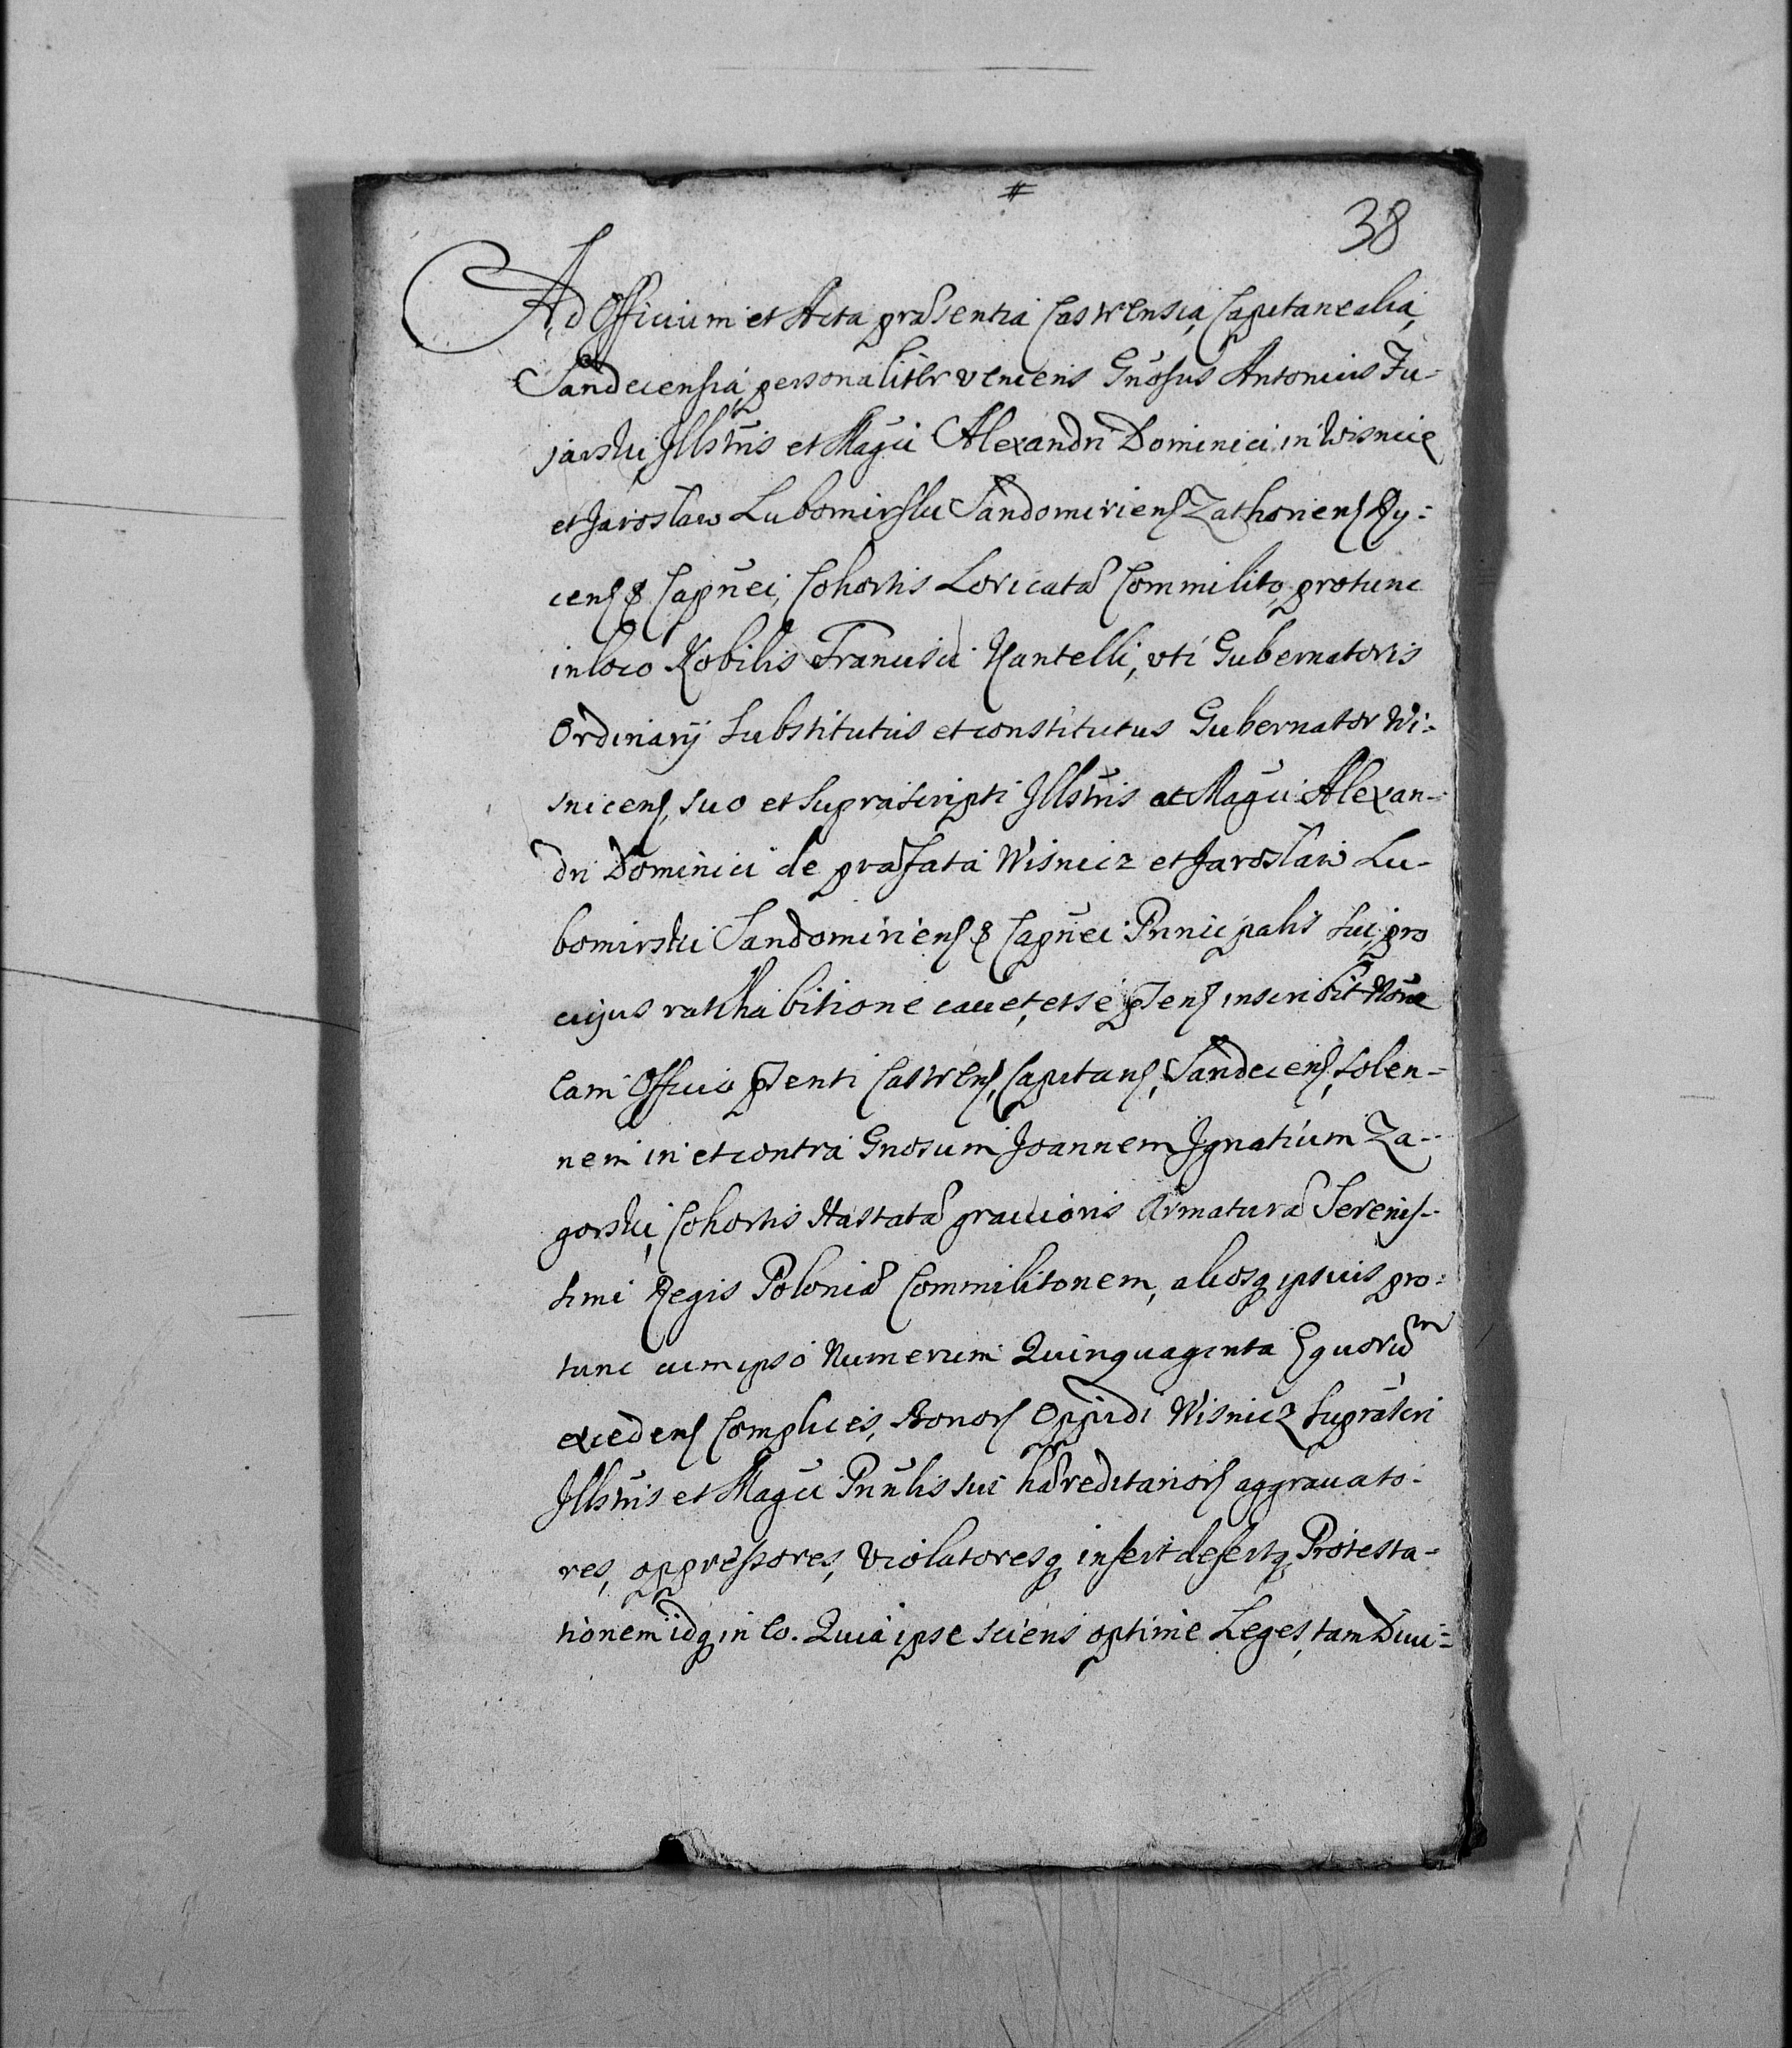 #
38
Ad Officium et Acta præsentia Castrensia, Capitanealia,
Sandecensia, personaliter veniens Gn̄osus Antonius Fu-
jarski, Illstr̄is et Magn̄ci Alexandri Dominici in Wisnicz
et Jaroslaw Lubomirski Sandomiriens Zathoriens Ry-
cens & Capn̄ei, Cohortis Loricatæ Commilito, protunc
in loco Nobilis Francisci Nantelli, vti Gubernatoris
Ordinarij Substitutus et constitutus Gubernator Wi-
snicens, suo et suprascripti Illstr̄is et Magn̄ci Alexan-
dri Dominici de præfata Wisnicz et Jaroslaw Lu-
bomirski Sandomiriens & Capn̄ei Principalis sui, pro
cujus ratihabitione cauet, et se pn̄s inscribit Nōne
Eam Officio pn̄ti Castrens, Capitans, Sandecens, Solen-
nem in et contra Gnosum Joannem Ignatium Za-
gorski, Cohortis Hastatæ grauioris Armaturæ Serenis-
simi Regis Poloniæ Commilitonem, aliosq ipsius pro-
tunc cum ipso Numerum Quinquaginta Equorum
excedens Complices, Bonors Oppidi Wisnicz suprascri
Illstr̄is et Magn̄ci Prin̄lis sui hæreditariors aggrauato-
res, oppressores, violatoresq infert defertq Protesta-
tionem idq in Eo. Quia ipse sciens optime Leges, tam Diui-